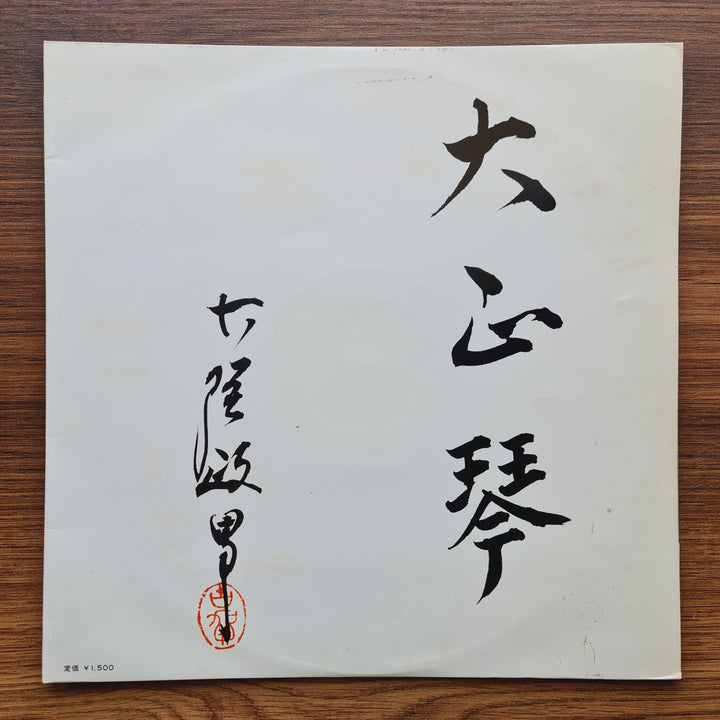 大正琴
大陸敏男
定価 ¥1,500